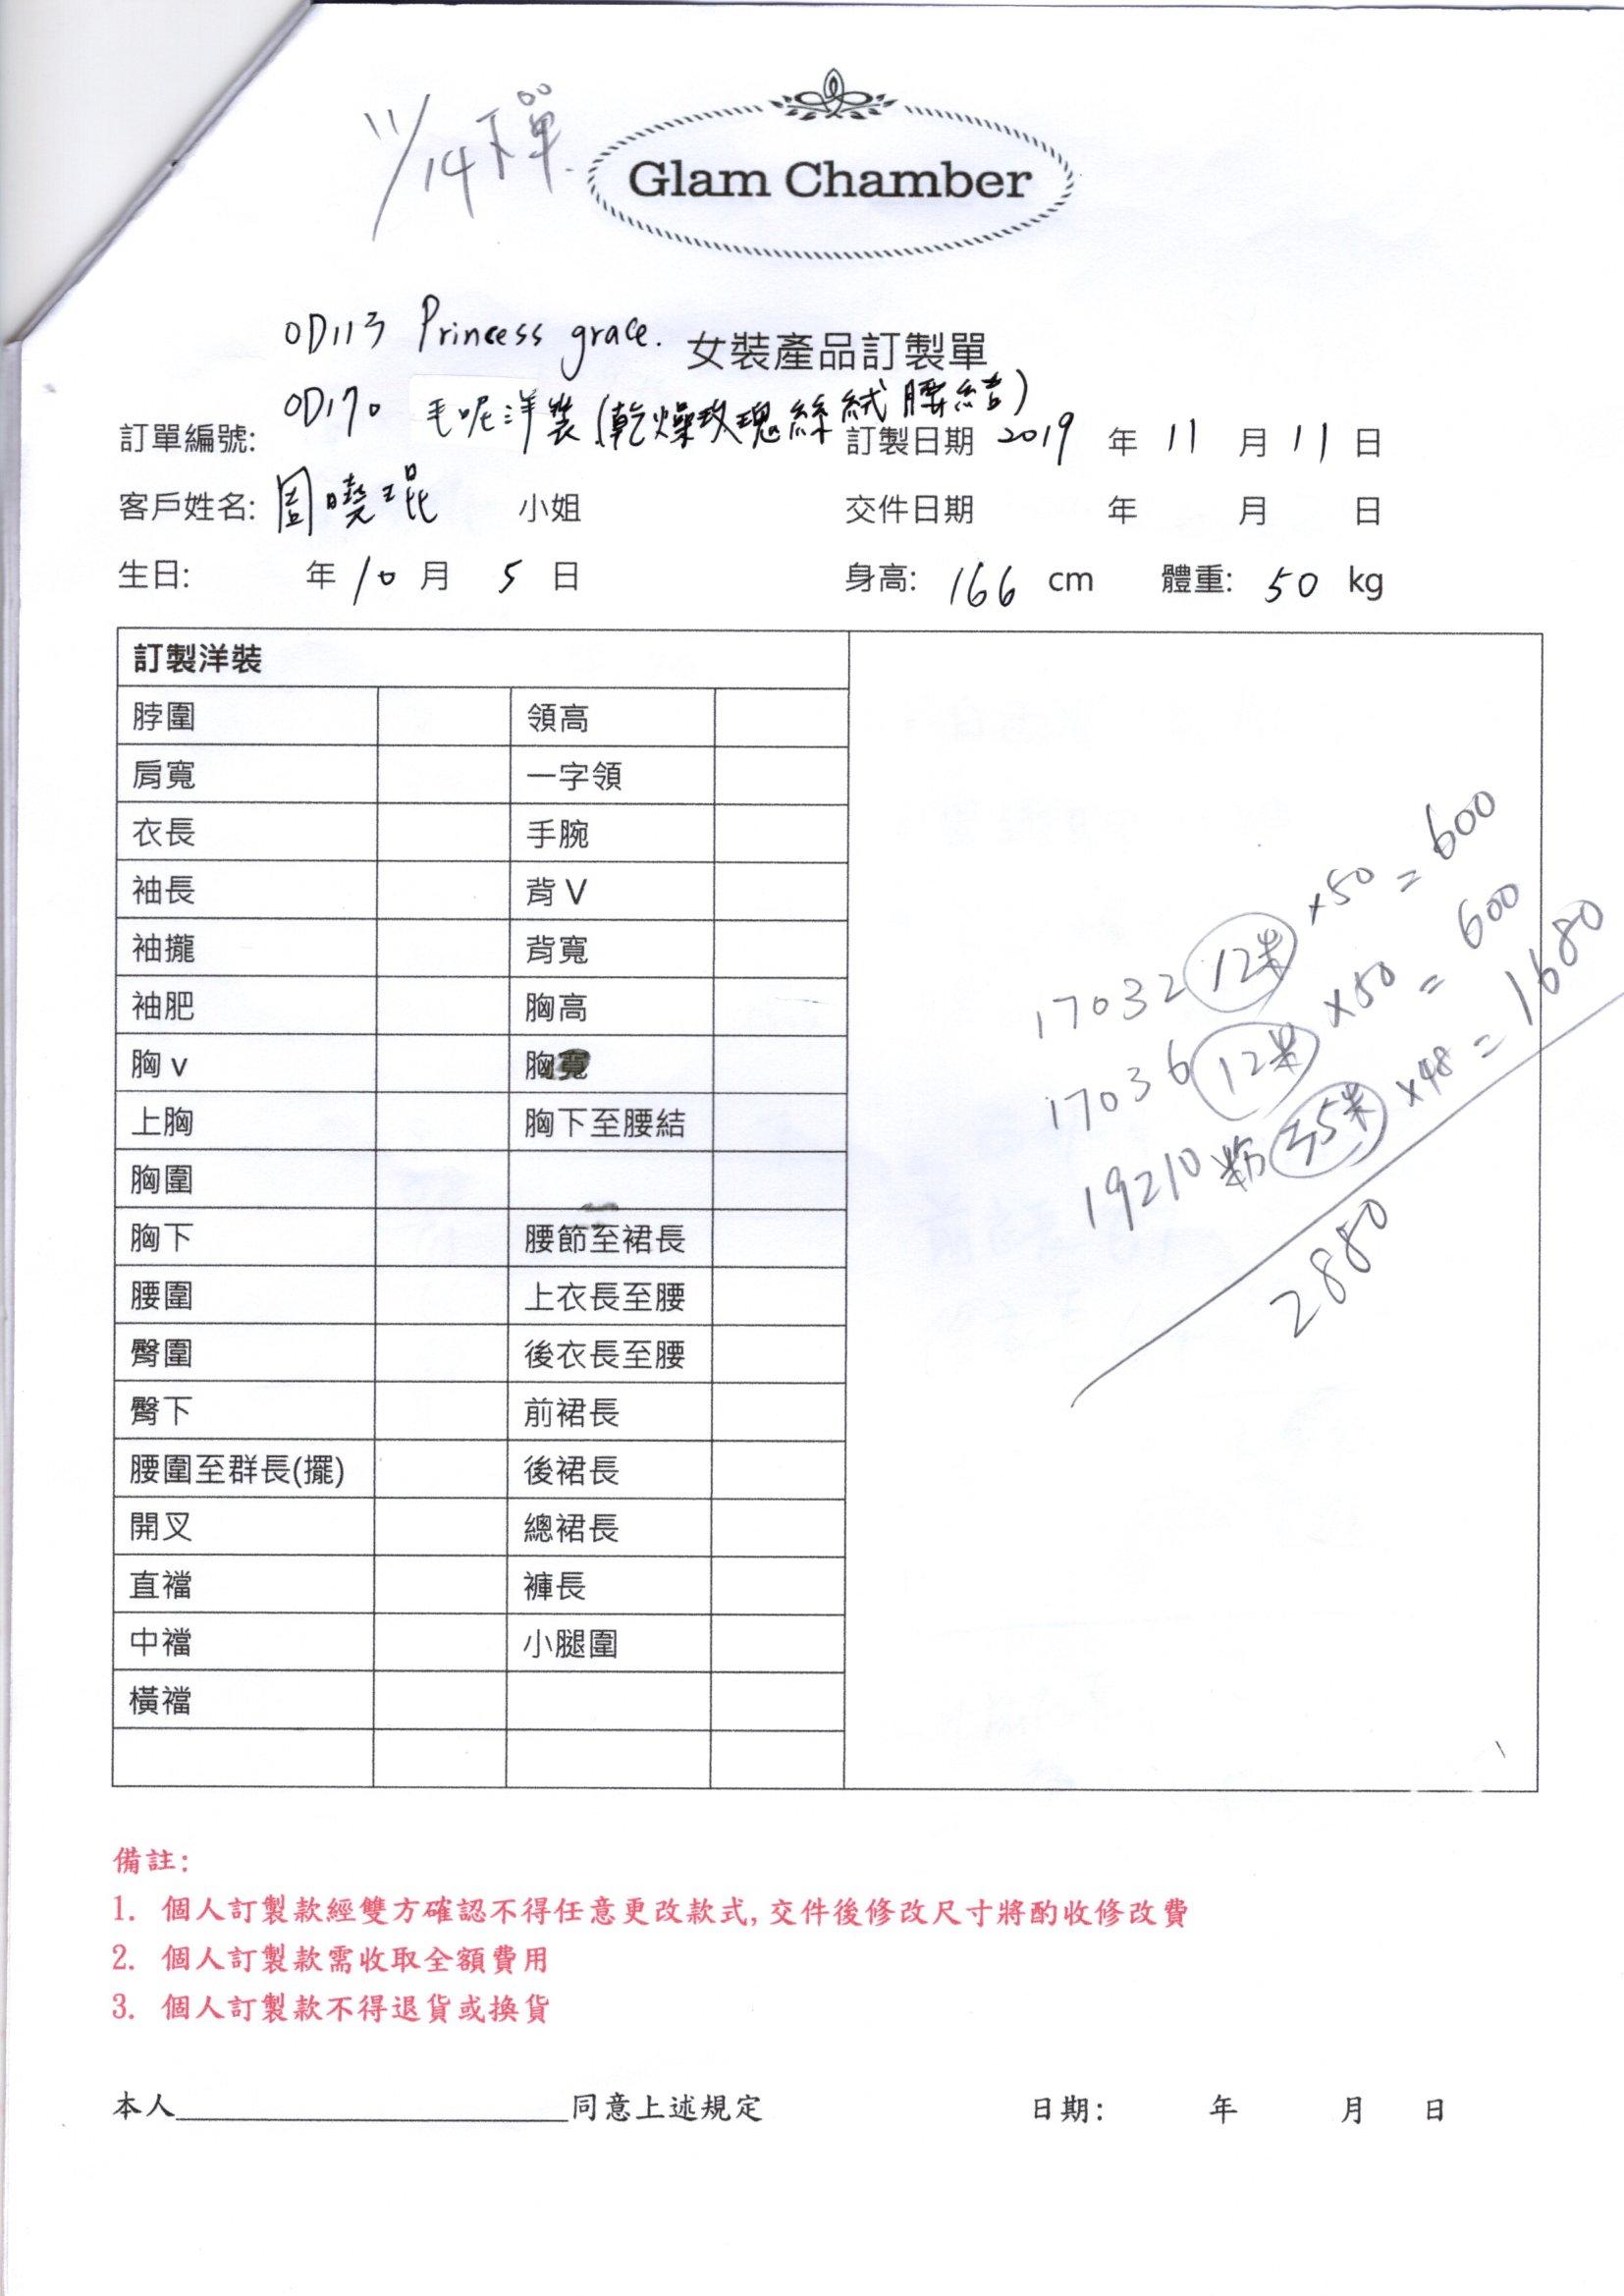 11/14下單.
Glam Chamber
OD113 Princess grace.
女裝產品訂製單
OD170 毛呢洋裝(乾燥玫瑰絲絨腰結)
訂單編號: 訂製日期 2019 年 11 月 11 日
客戶姓名: 周曉琨 小姐 交件日期 年 月 日
生日: 年 10 月 5 日 身高: 166 cm 體重: 50 kg
訂製洋裝
脖圍 領高
肩寬 一字領
衣長 手腕
袖長 背 V
袖攏 背寬
袖肥 胸高
胸 v 胸寬
上胸 胸下至腰結
胸圍
胸下 腰節至裙長
腰圍 上衣長至腰
臀圍 後衣長至腰
臀下 前裙長
腰圍至群長(擺) 後裙長
開叉 總裙長
直襠 褲長
中襠 小腿圍
橫襠
17032 12米 ×50 = 600
17036 12米 ×50 = 600
19210 粉 35米 ×48 = 1680
2880
備註:
1. 個人訂製款經雙方確認不得任意更改款式,交件後修改尺寸將酌收修改費
2. 個人訂製款需收取全額費用
3. 個人訂製款不得退貨或換貨
本人________________________同意上述規定 日期: 年 月 日